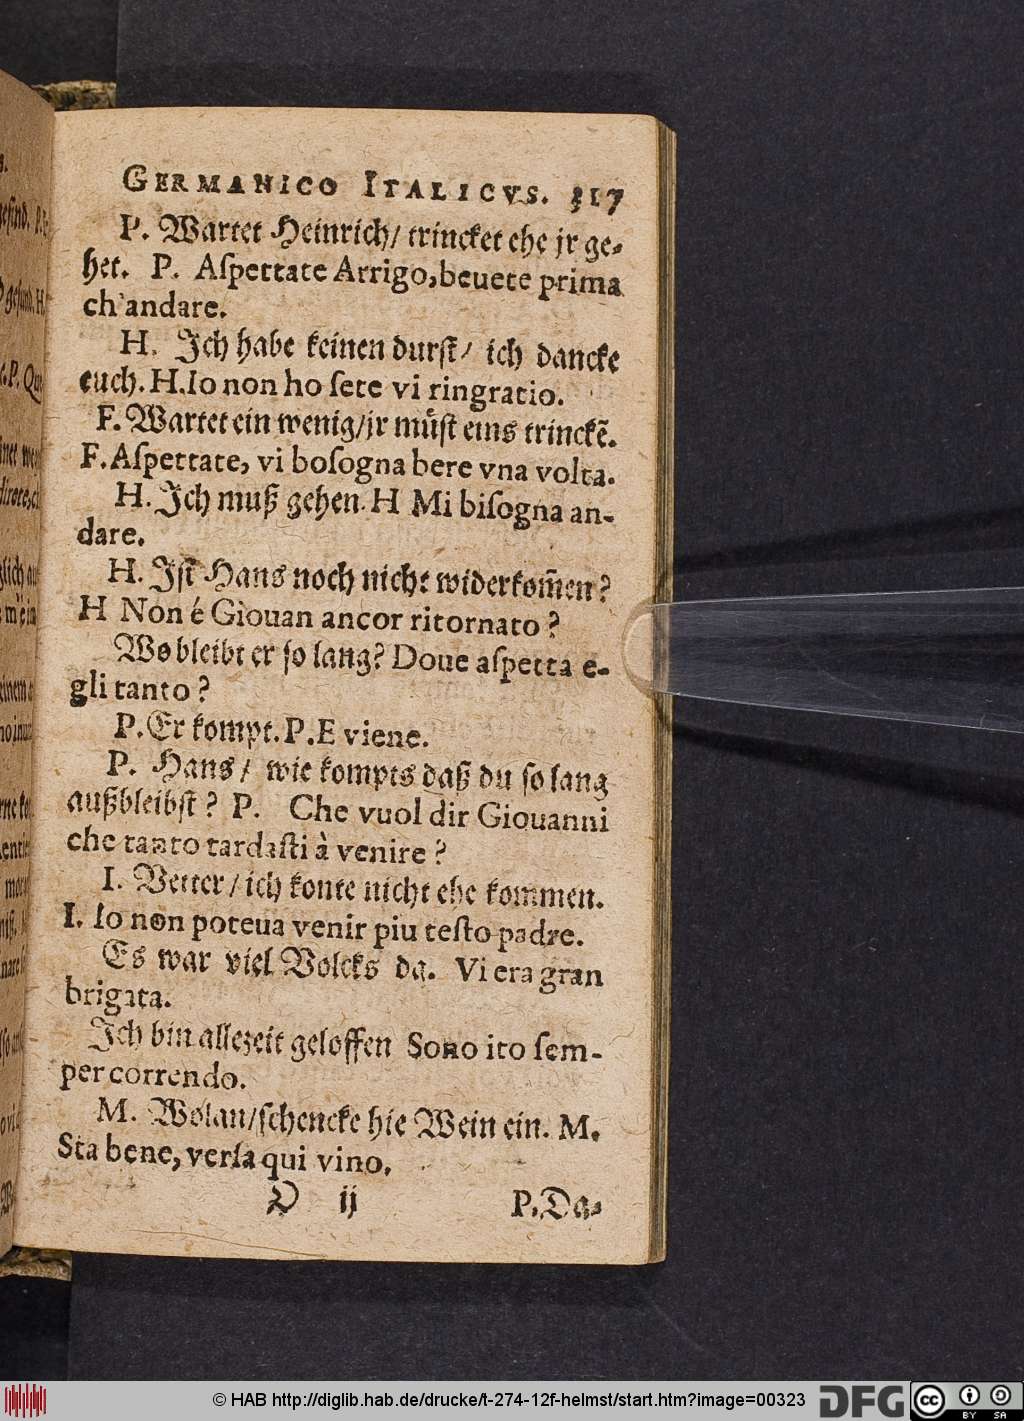 GERMANICO ITALICVS. 317
P. Wartet Heinrich/ trincket ehe jr ge-
het. P. Aſpettate Arrigo, beuete prima
ch'andare.
H. Jch habe keinen durſt/ ich dancke
euch. H. Io non ho ſete vi ringratio.
F. Wartet ein wenig/jr müſt eins trinckē.
F. Aſpettate, vi boſogna bere vna volta.
H. Jch muß gehen. H Mi biſogna an-
dare.
H. Jſt Hans noch nicht widerkom̃en?
H Non é Giouan ancor ritornato?
Wo bleibt er ſo lang? Doue aſpetta e-
gli tanto?
P. Er kompt. P. E viene.
P. Hans/ wie kompts daß du ſo lang
außbleibſt? P. Che vuol dir Giouanni
che tanto tardaſti à venire?
I. Vetter/ ich konte nicht ehe kommen.
I. Io non poteua venir piu teſto padre.
Es war viel Volcks da. Vi era gran
brigata.
Jch bin allezeit geloffen Sono ito ſem-
per correndo.
M. Wolan/ſchencke hie Wein ein. M.
Sta bene, verſa qui vino.
ij P. Da-
© HAB http://diglib.hab.de/drucke/t-274-12f-helmst/start.htm?image=00323 DFG cc BY SA